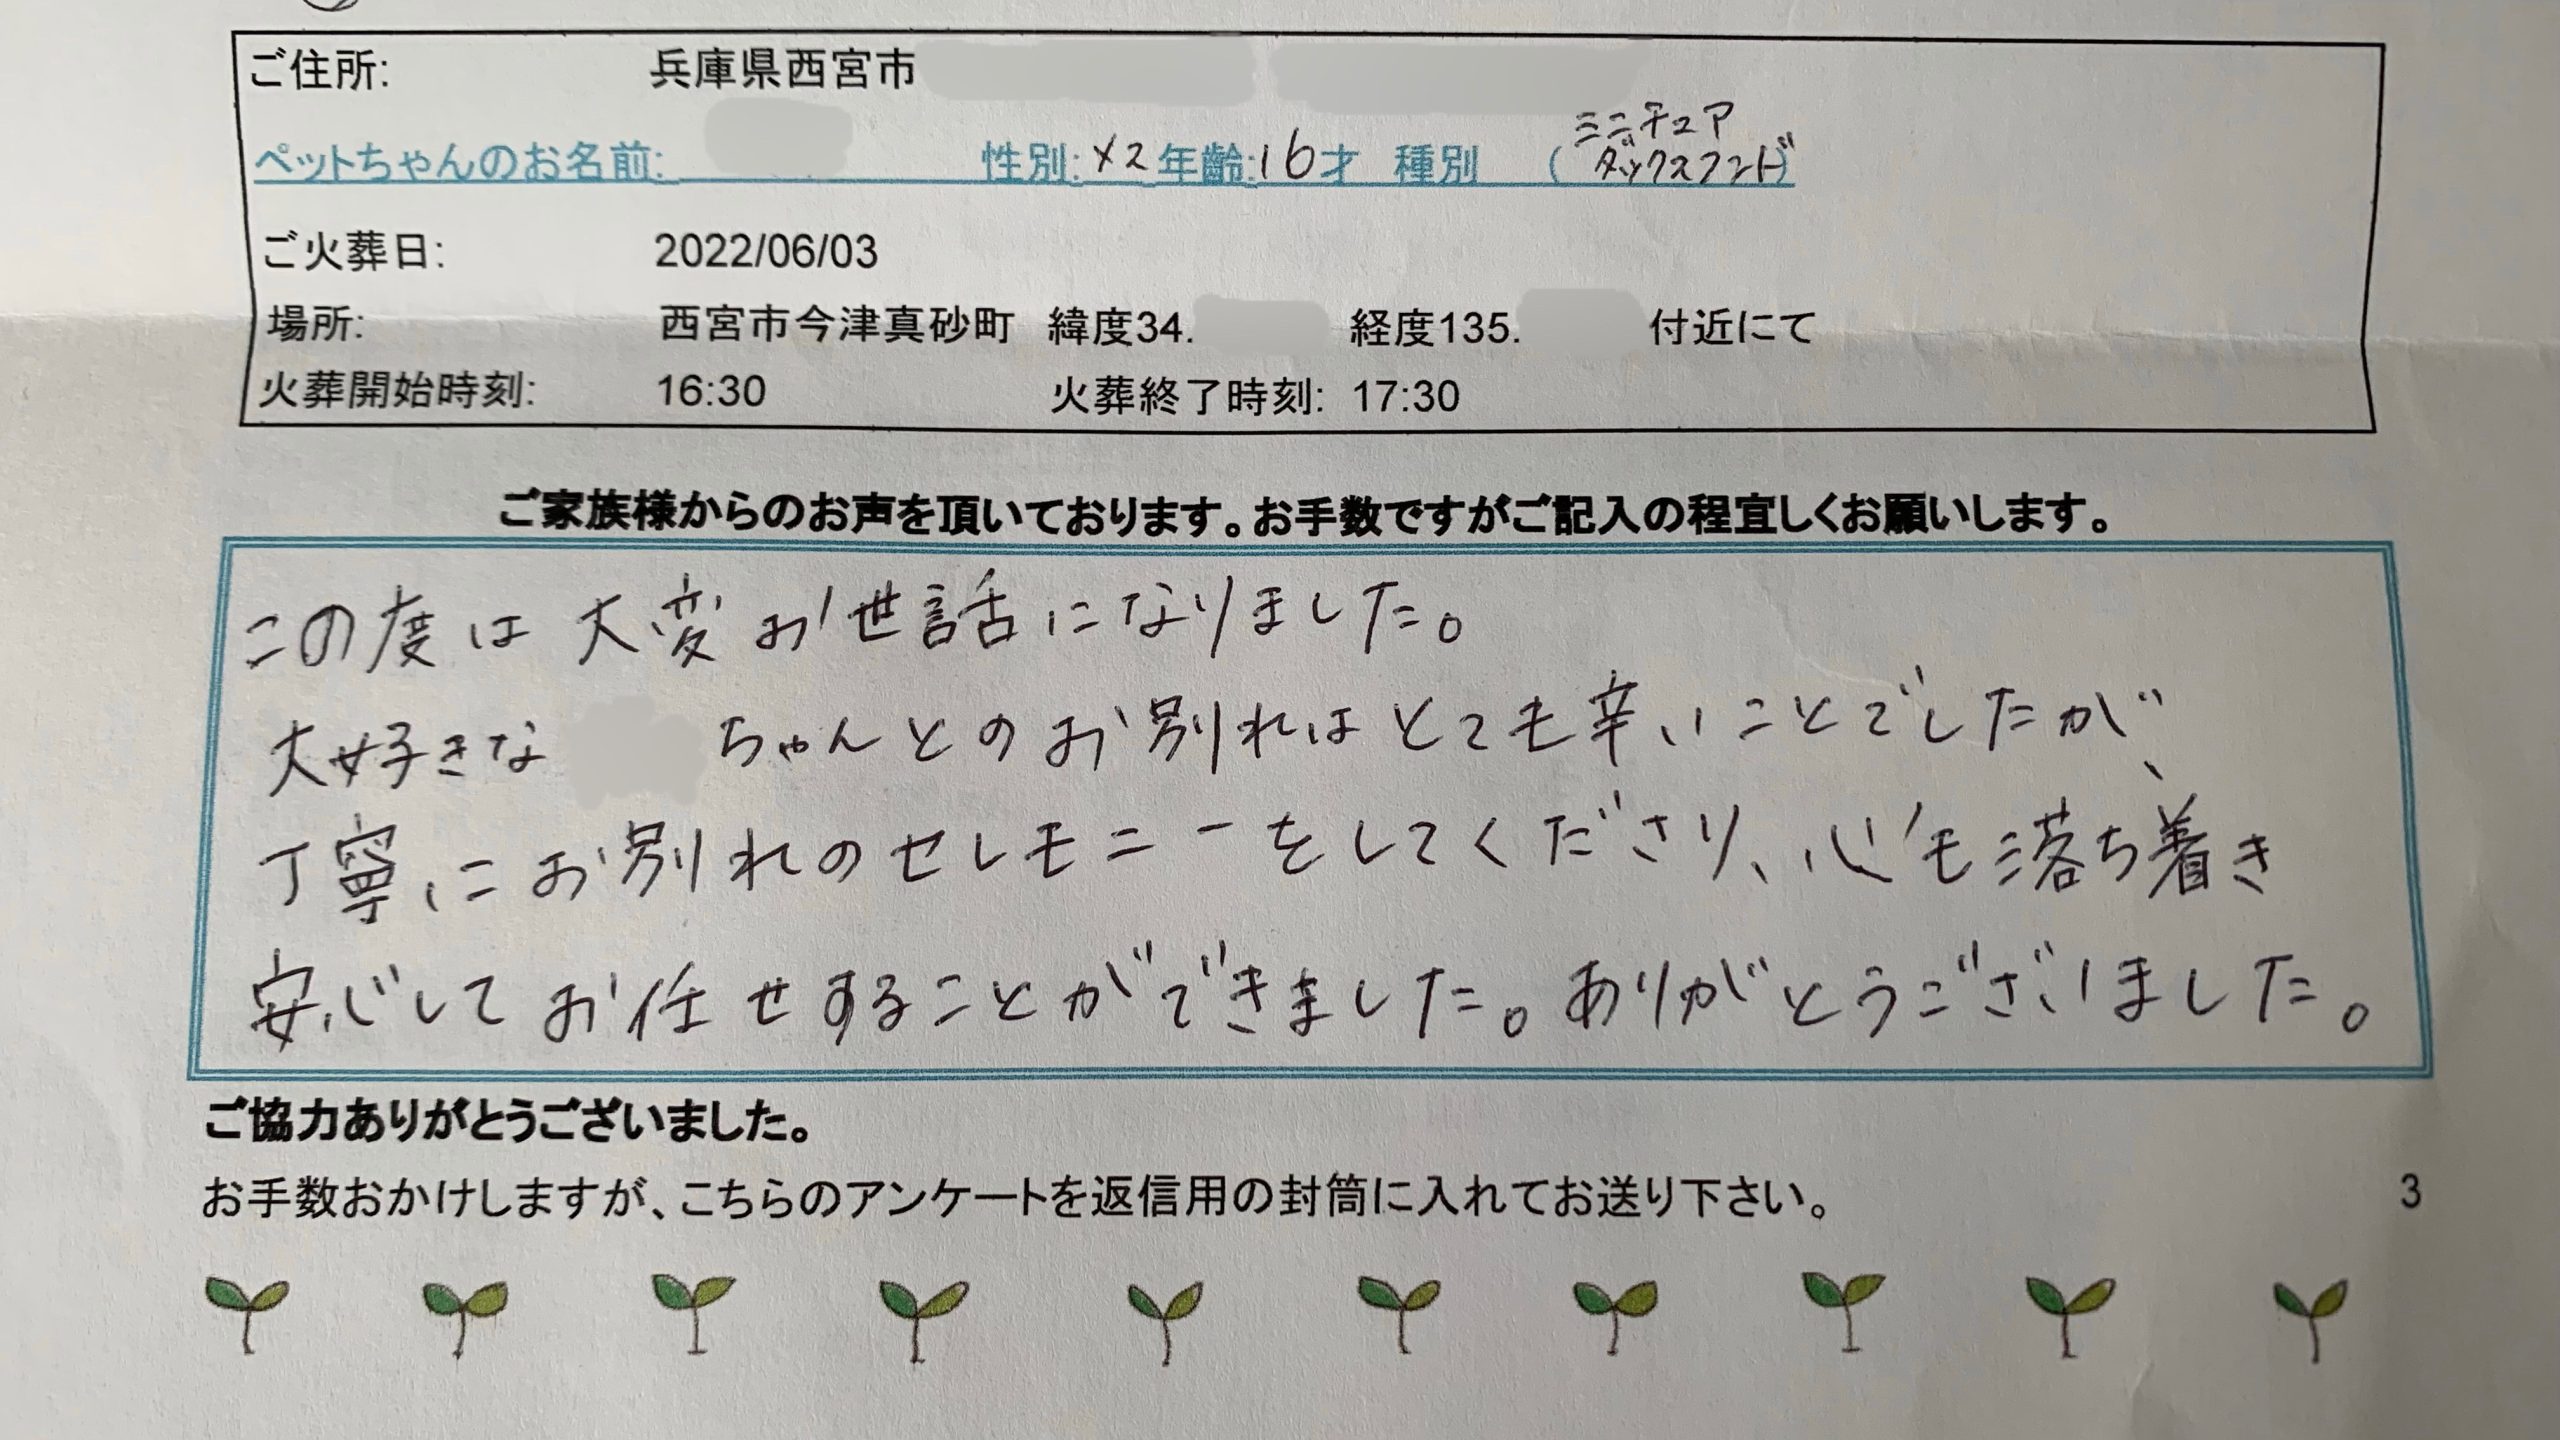 ご住所: 兵庫県西宮市
ペットちゃんのお名前: 性別:メス 年齢:16才 種別 (ミニチュアダックスフンド)
ご火葬日: 2022/06/03
場所: 西宮市今津真砂町 緯度34. 経度135. 付近にて
火葬開始時刻: 16:30 火葬終了時刻: 17:30
ご家族様からのお声を頂いております。お手数ですがご記入の程宜しくお願いします。
この度は大変お世話になりました。
大好きな ちゃんとのお別れはとても辛いことでしたが、
丁寧にお別れのセレモニーをしてくださり、心も落ち着き
安心してお任せすることができました。ありがとうございました。
ご協力ありがとうございました。
お手数おかけしますが、こちらのアンケートを返信用の封筒に入れてお送り下さい。 3